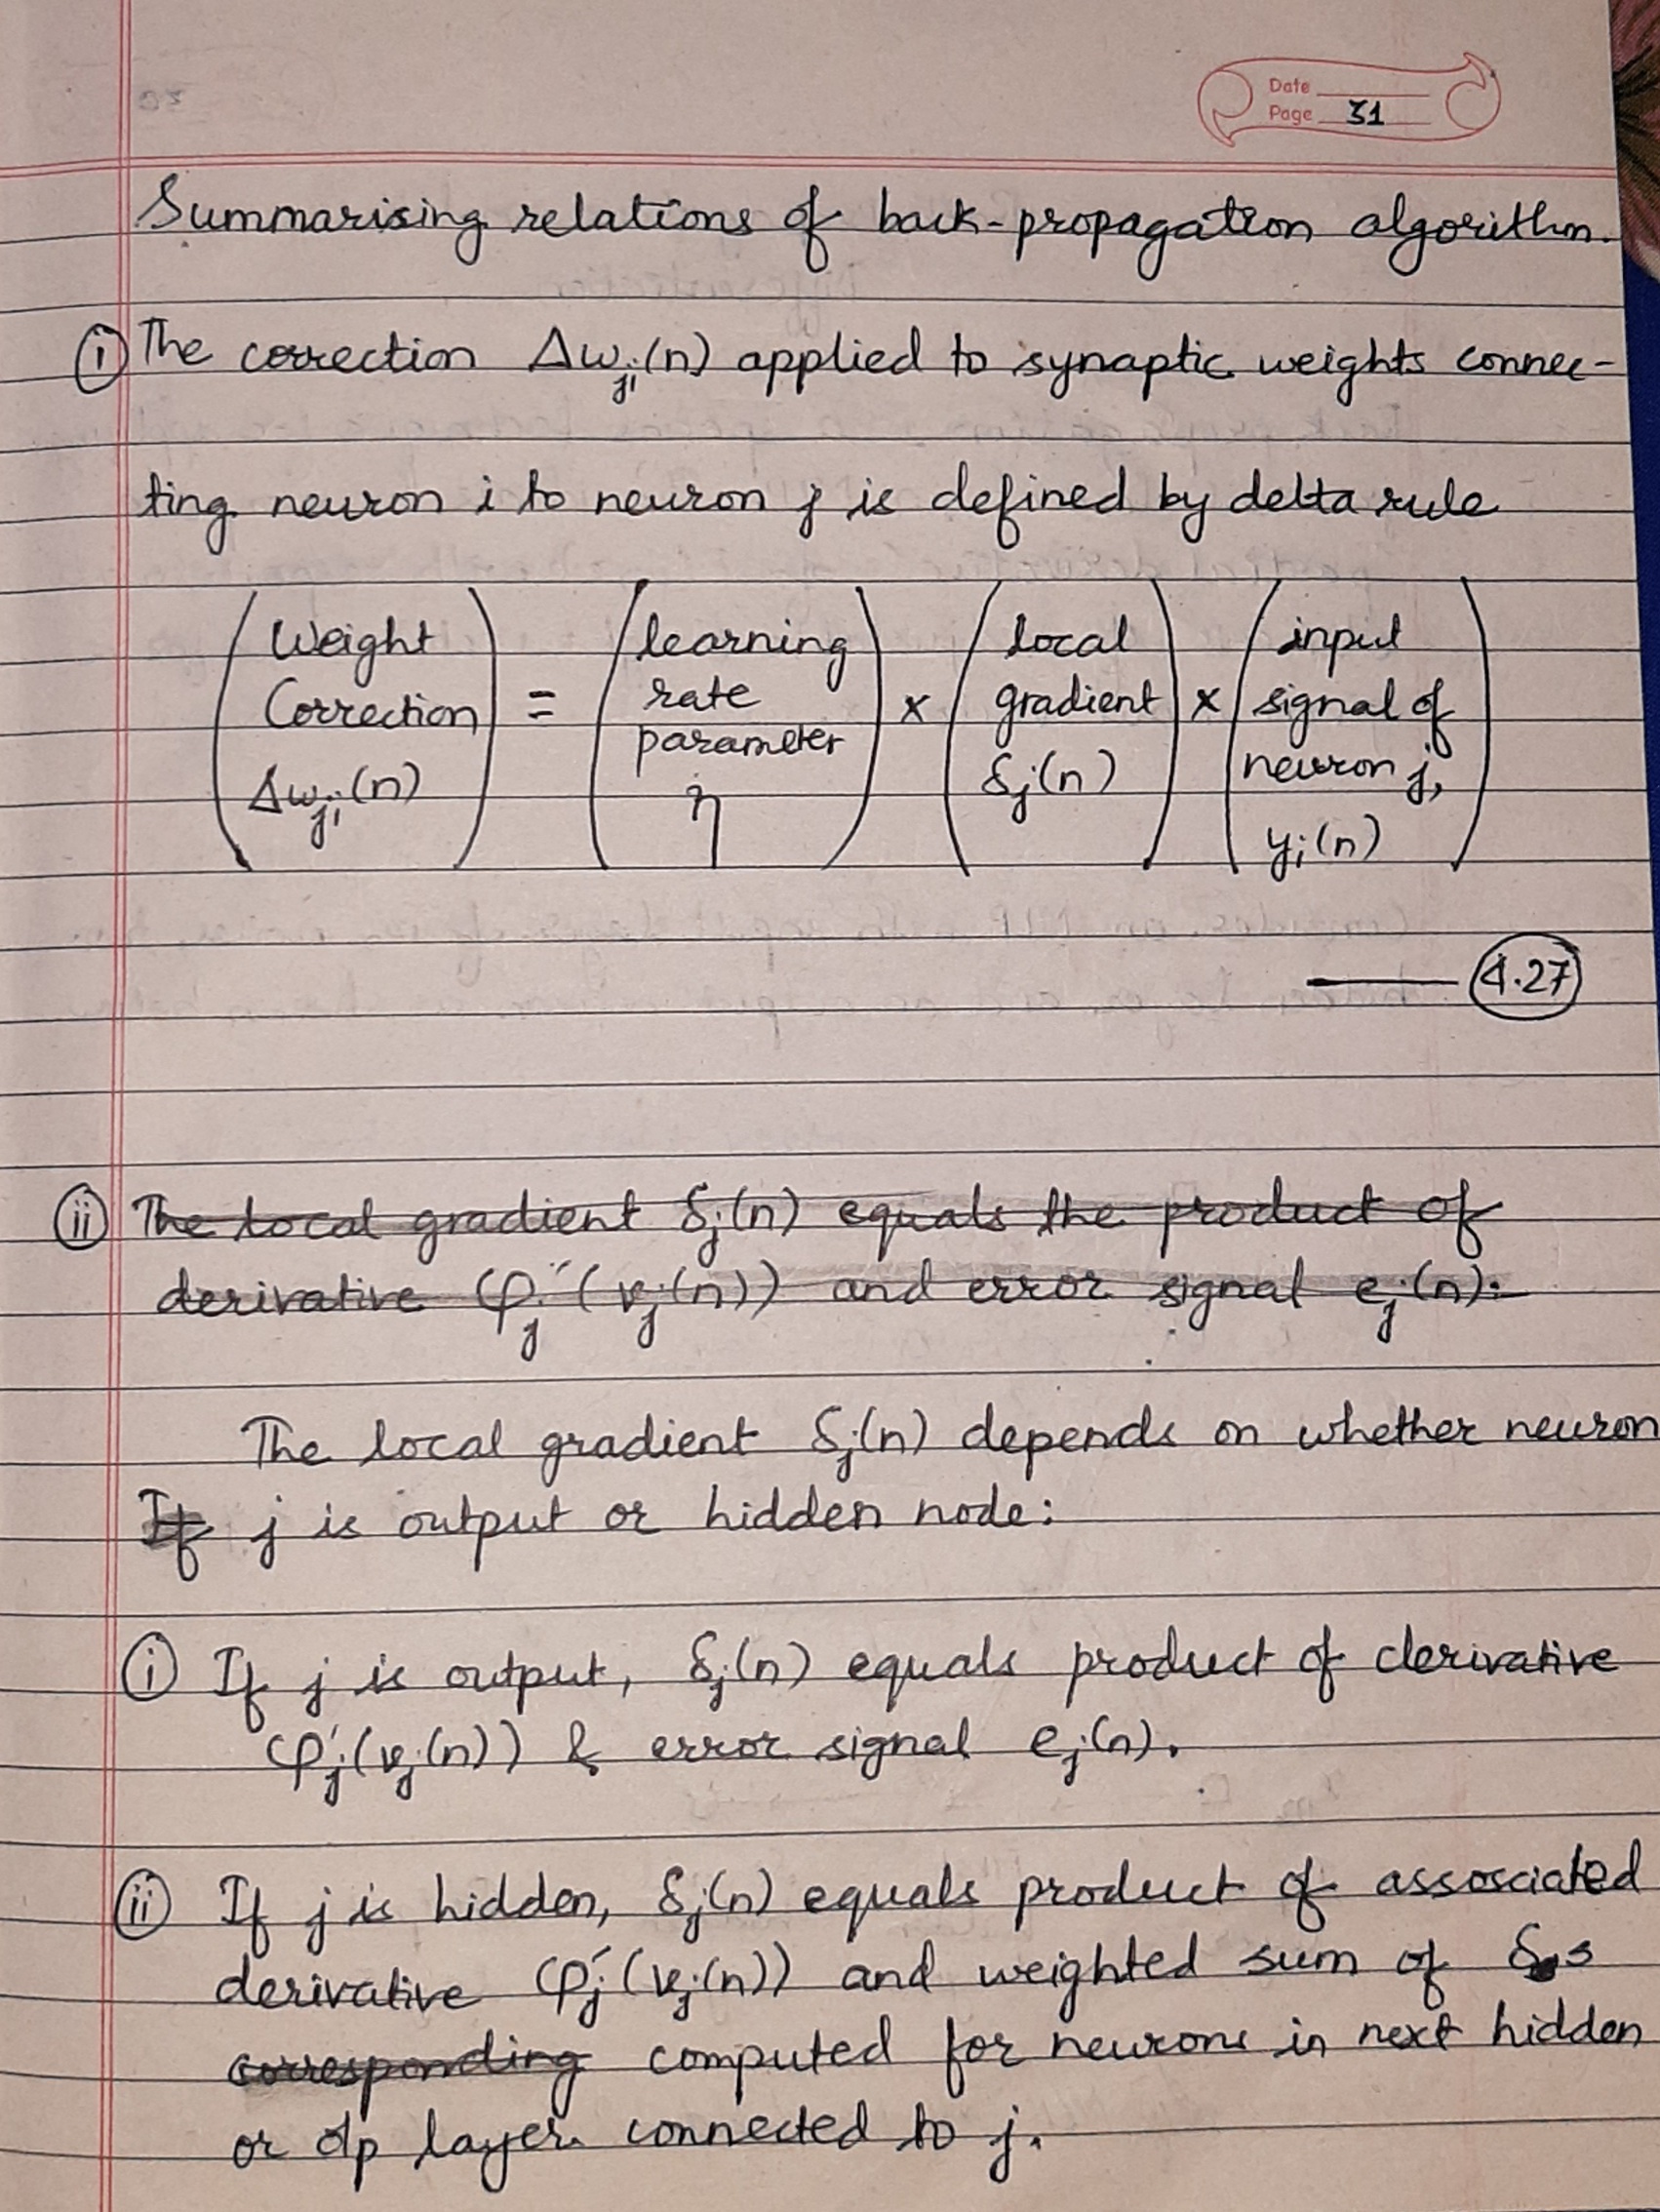 Date
Page 31
Summarising relations of back-propagation algorithm.
(i) The correction Δw_ji(n) applied to synaptic weights connec-
ting neuron i to neuron j is defined by delta rule
(Weight Correction Δw_ji(n)) = (learning rate parameter η) x (local gradient δ_j(n)) x (input signal of neuron j, y_i(n))
(4.27)
(ii) The local gradient δ_j(n) equals the product of
derivative φ_j′(v_j(n)) and error signal e_j(n).
The local gradient δ_j(n) depends on whether neuron
If j is output or hidden node:
(i) If j is output, δ_j(n) equals product of derivative
φ_j′(v_j(n)) & error signal e_j(n).
(ii) If j is hidden, δ_j(n) equals product of assosciated
derivative φ_j′(v_j(n)) and weighted sum of δs
corresponding computed for neurons in next hidden
or o/p layer connected to j.